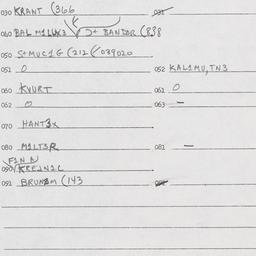 030 KRANT (366 031
040 BAL M1LUX3 J+ BANDAR (838
050 S+MUC1G (212 (039020
051 0 052 KALAMU, TN3
060 KVURT 061 0
062 0 063 —
070 HANT3X
080 M1LT3R 081 —
F1NN
090
091 BRUNEM (143